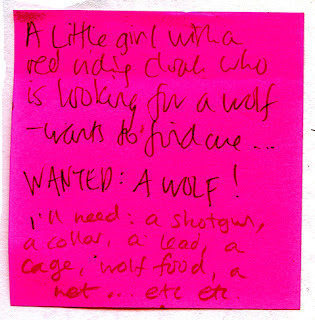 A little girl with a
red riding cloak who
is looking for a wolf
- wants to find one ...
WANTED: A WOLF!
I'll need: a shotgun,
a collar, a lead, a
cage, wolf food, a
net ... etc etc.